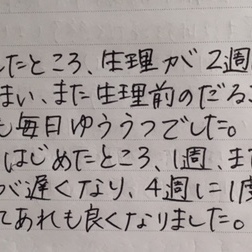 したところ、生理が2週
まい、また生理前のだるさ
も毎日ゆううつでした。
はじめたところ、1週、また
が遅くなり、4週に1度
てあれも良くなりました。